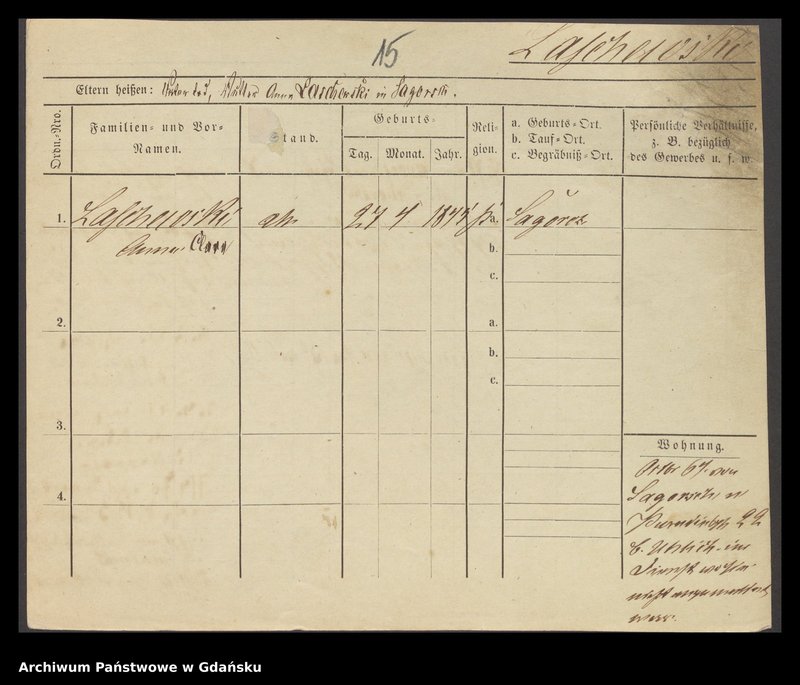 15
Laschewski
Eltern heißen: Vater tod, Mutter Anna Laschewski in Sagorsch.
Ordn.-Nro.
Familien- und Vor-
Namen.
Stand.
Geburts-
Tag. Monat. Jahr.
Reli-
gion.
a. Geburts-Ort.
b. Tauf-Ort.
c. Begräbniß-Ort.
Persönliche Verhältnisse,
z. B. bezüglich
des Gewerbes u. s. w.
1. Laschewski 27 4 a.
Anna Clara
b.
c.
2. a.
b.
c.
3.
4.
Wohnung.
Sagorsch
Dienst wo sie
nicht angemeldet
war.
Archiwum Państwowe w Gdańsku